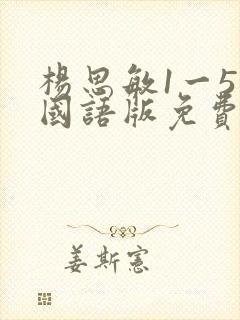 楊思敏1一5
國語版免費
姜斯憲